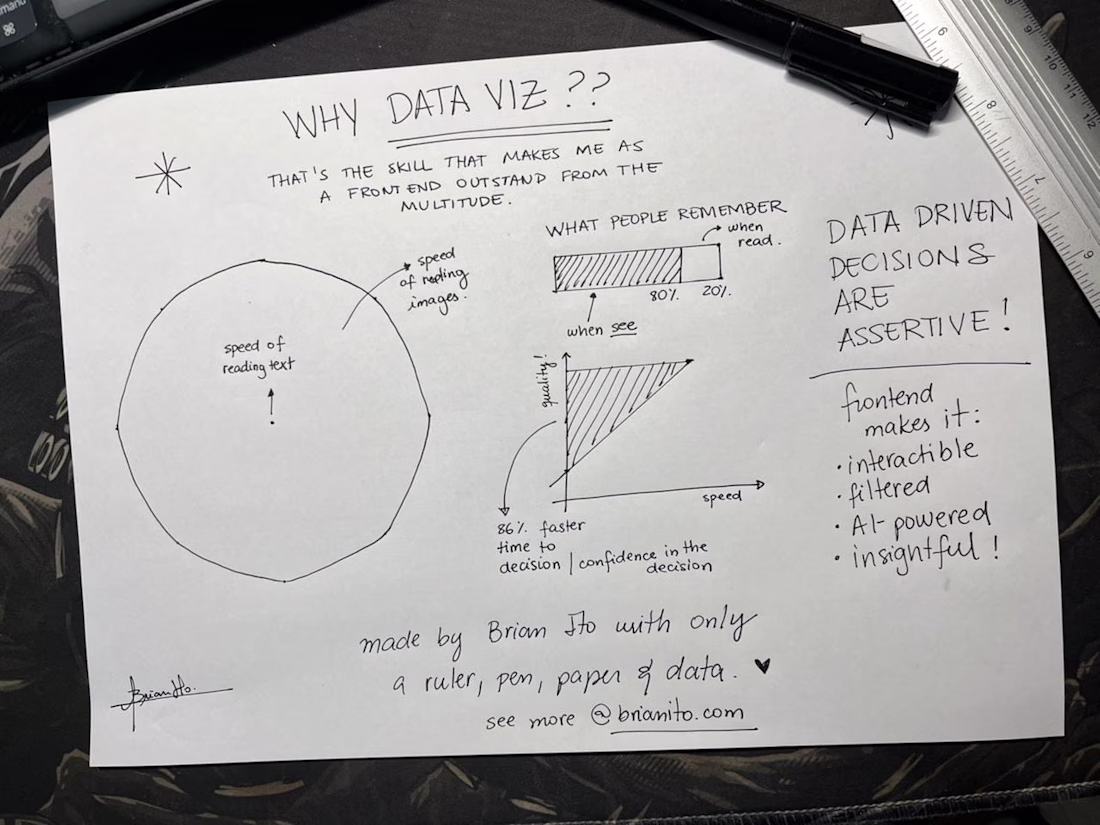 WHY DATA VIZ??
THAT'S THE SKILL THAT MAKES ME AS
A FRONT END OUTSTAND FROM THE
MULTITUDE.
speed
of reading
images.
speed of
reading text
WHAT PEOPLE REMEMBER
when
read.
80%.
20%.
when see
quality!
speed
86% faster
time to
decision / confidence in the
decision
DATA DRIVEN
DECISIONS
ARE
ASSERTIVE!
frontend
makes it:
• interactible
• filtered
• AI-powered
• insightful!
made by Brian Ito with only
a ruler, pen, paper & data. ♥
see more @brianito.com
Brian Ito.
command
⌘
6
8
7
6
9
10
11
12